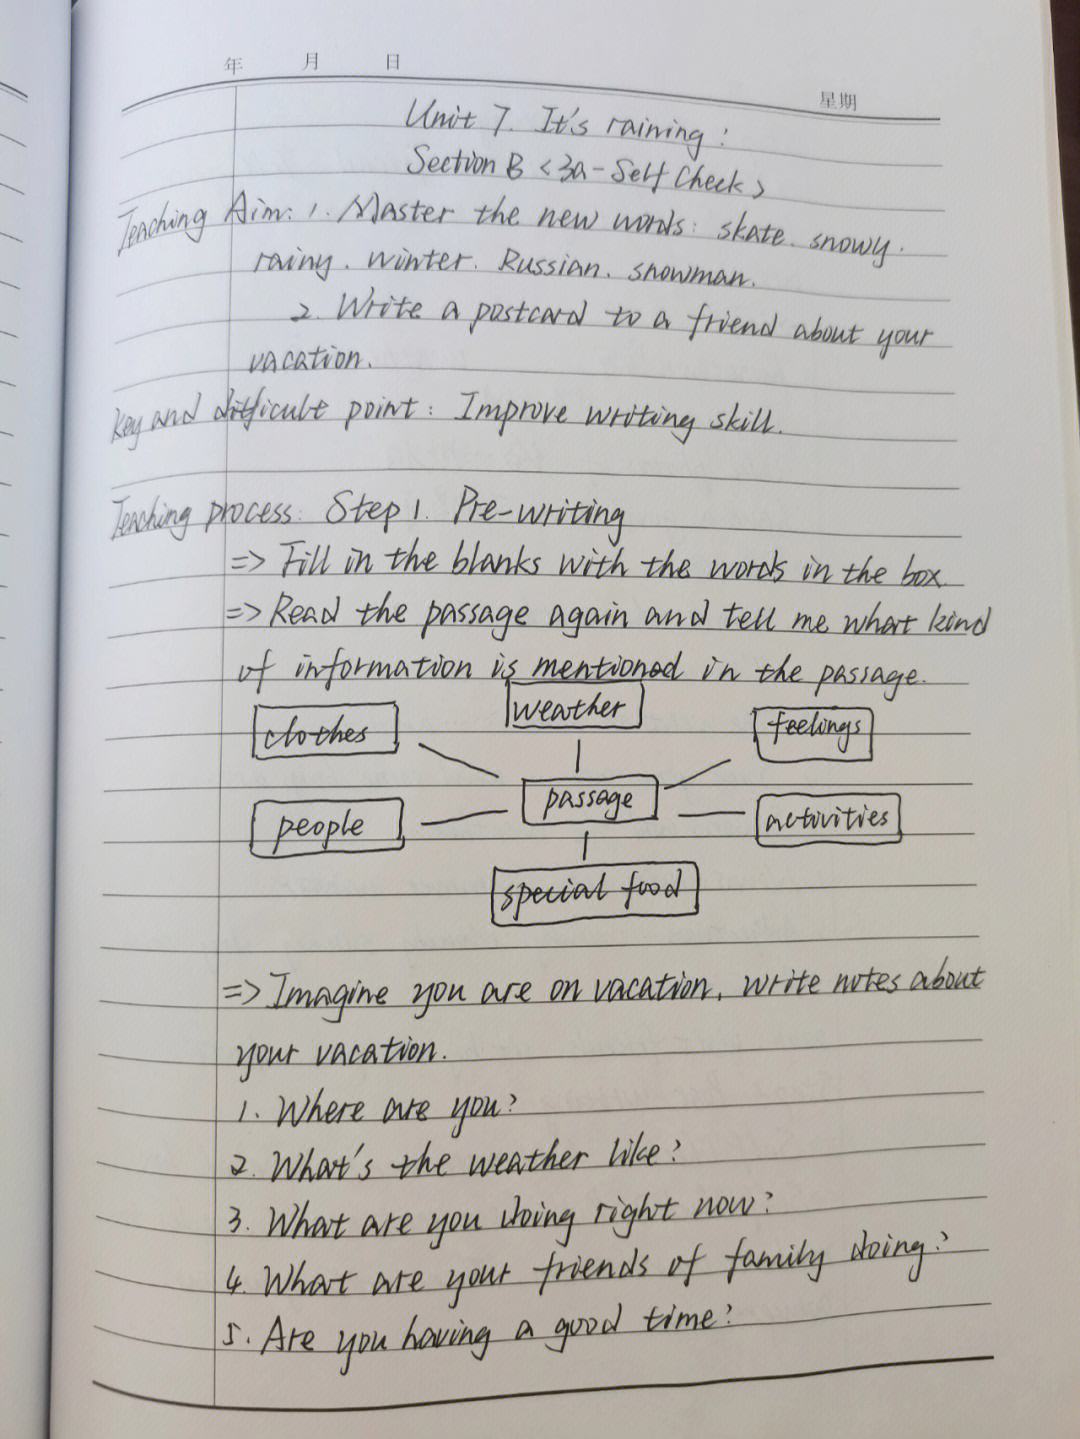 年 月 日
星期
Unit 7. It's raining!
Section B <3a-Self Check>
Teaching Aim: 1. Master the new words: skate. snowy.
rainy. winter. Russian. snowman.
2. Write a postcard to a friend about your
vacation.
key and difficult point: Improve writing skill.
Teaching process: Step 1. Pre-writing
=> Fill in the blanks with the words in the box
=> Read the passage again and tell me what kind
of information is mentioned in the passage.
clothes weather feelings
people passage activities
special food
=> Imagine you are on vacation, write notes about
your vacation.
1. Where are you?
2. What's the weather like?
3. What are you doing right now?
4. What are your friends of family doing?
5. Are you having a good time?